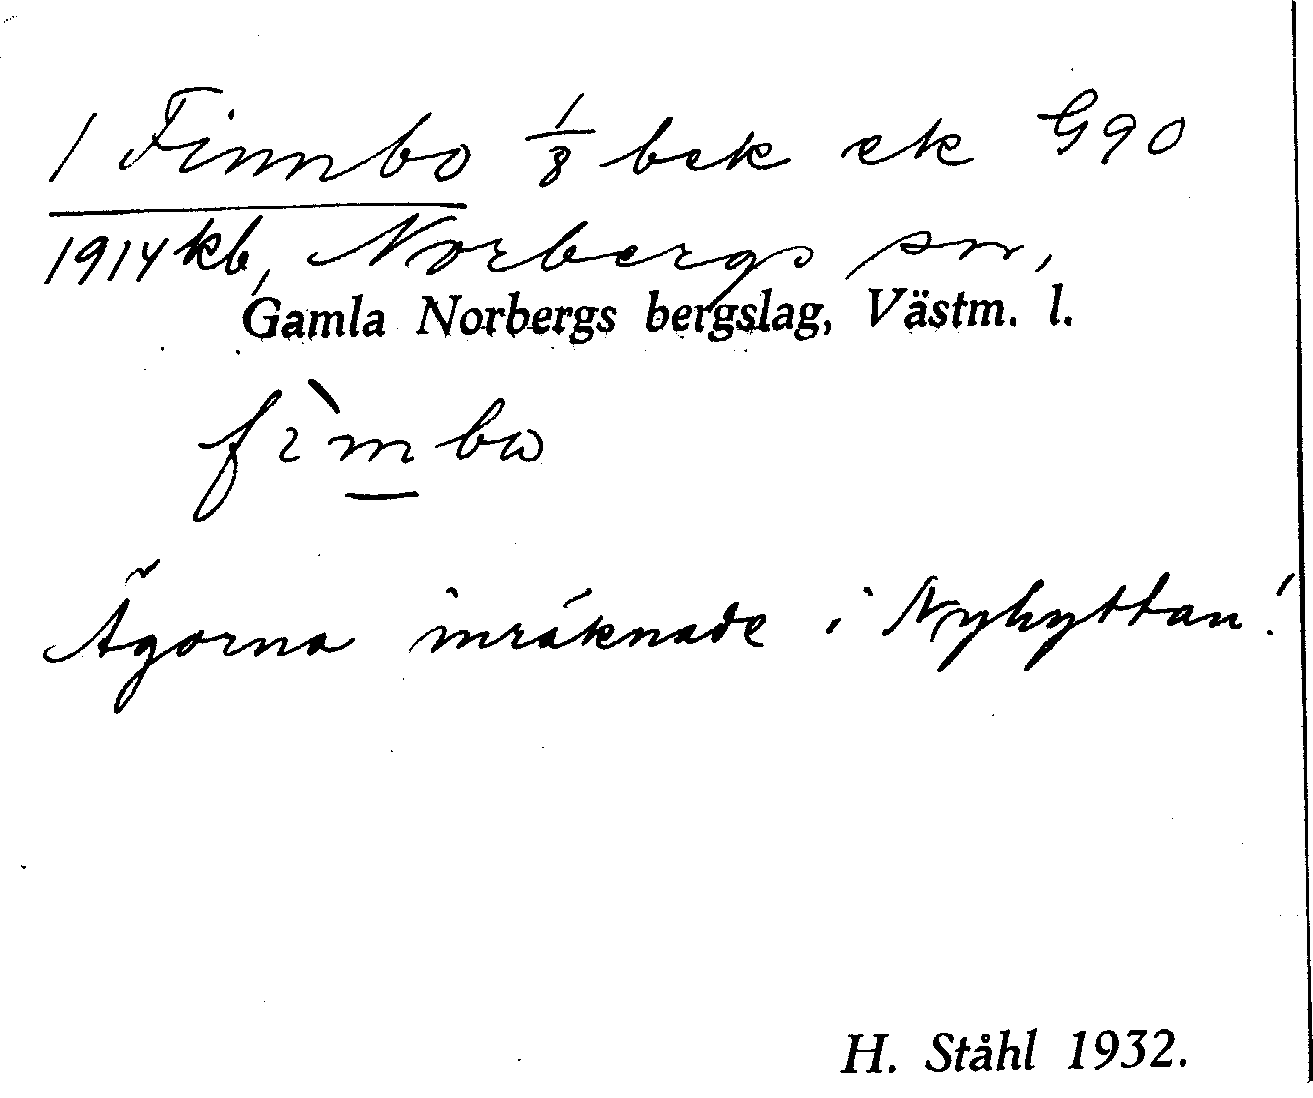 1 Finnbo 1/8 bek ek G90
1914 kb, Norbergs sn,
Gamla Norbergs bergslag, Västm. l.
fìmbω
Ägorna inräknade i Nyhyttan!
H. Ståhl 1932.